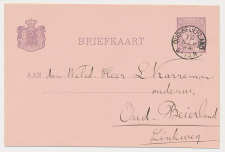 BRIEFKAART
AAN den Weld. Heer L Karreman
onderw.
Oud-Beierland
Linkweg